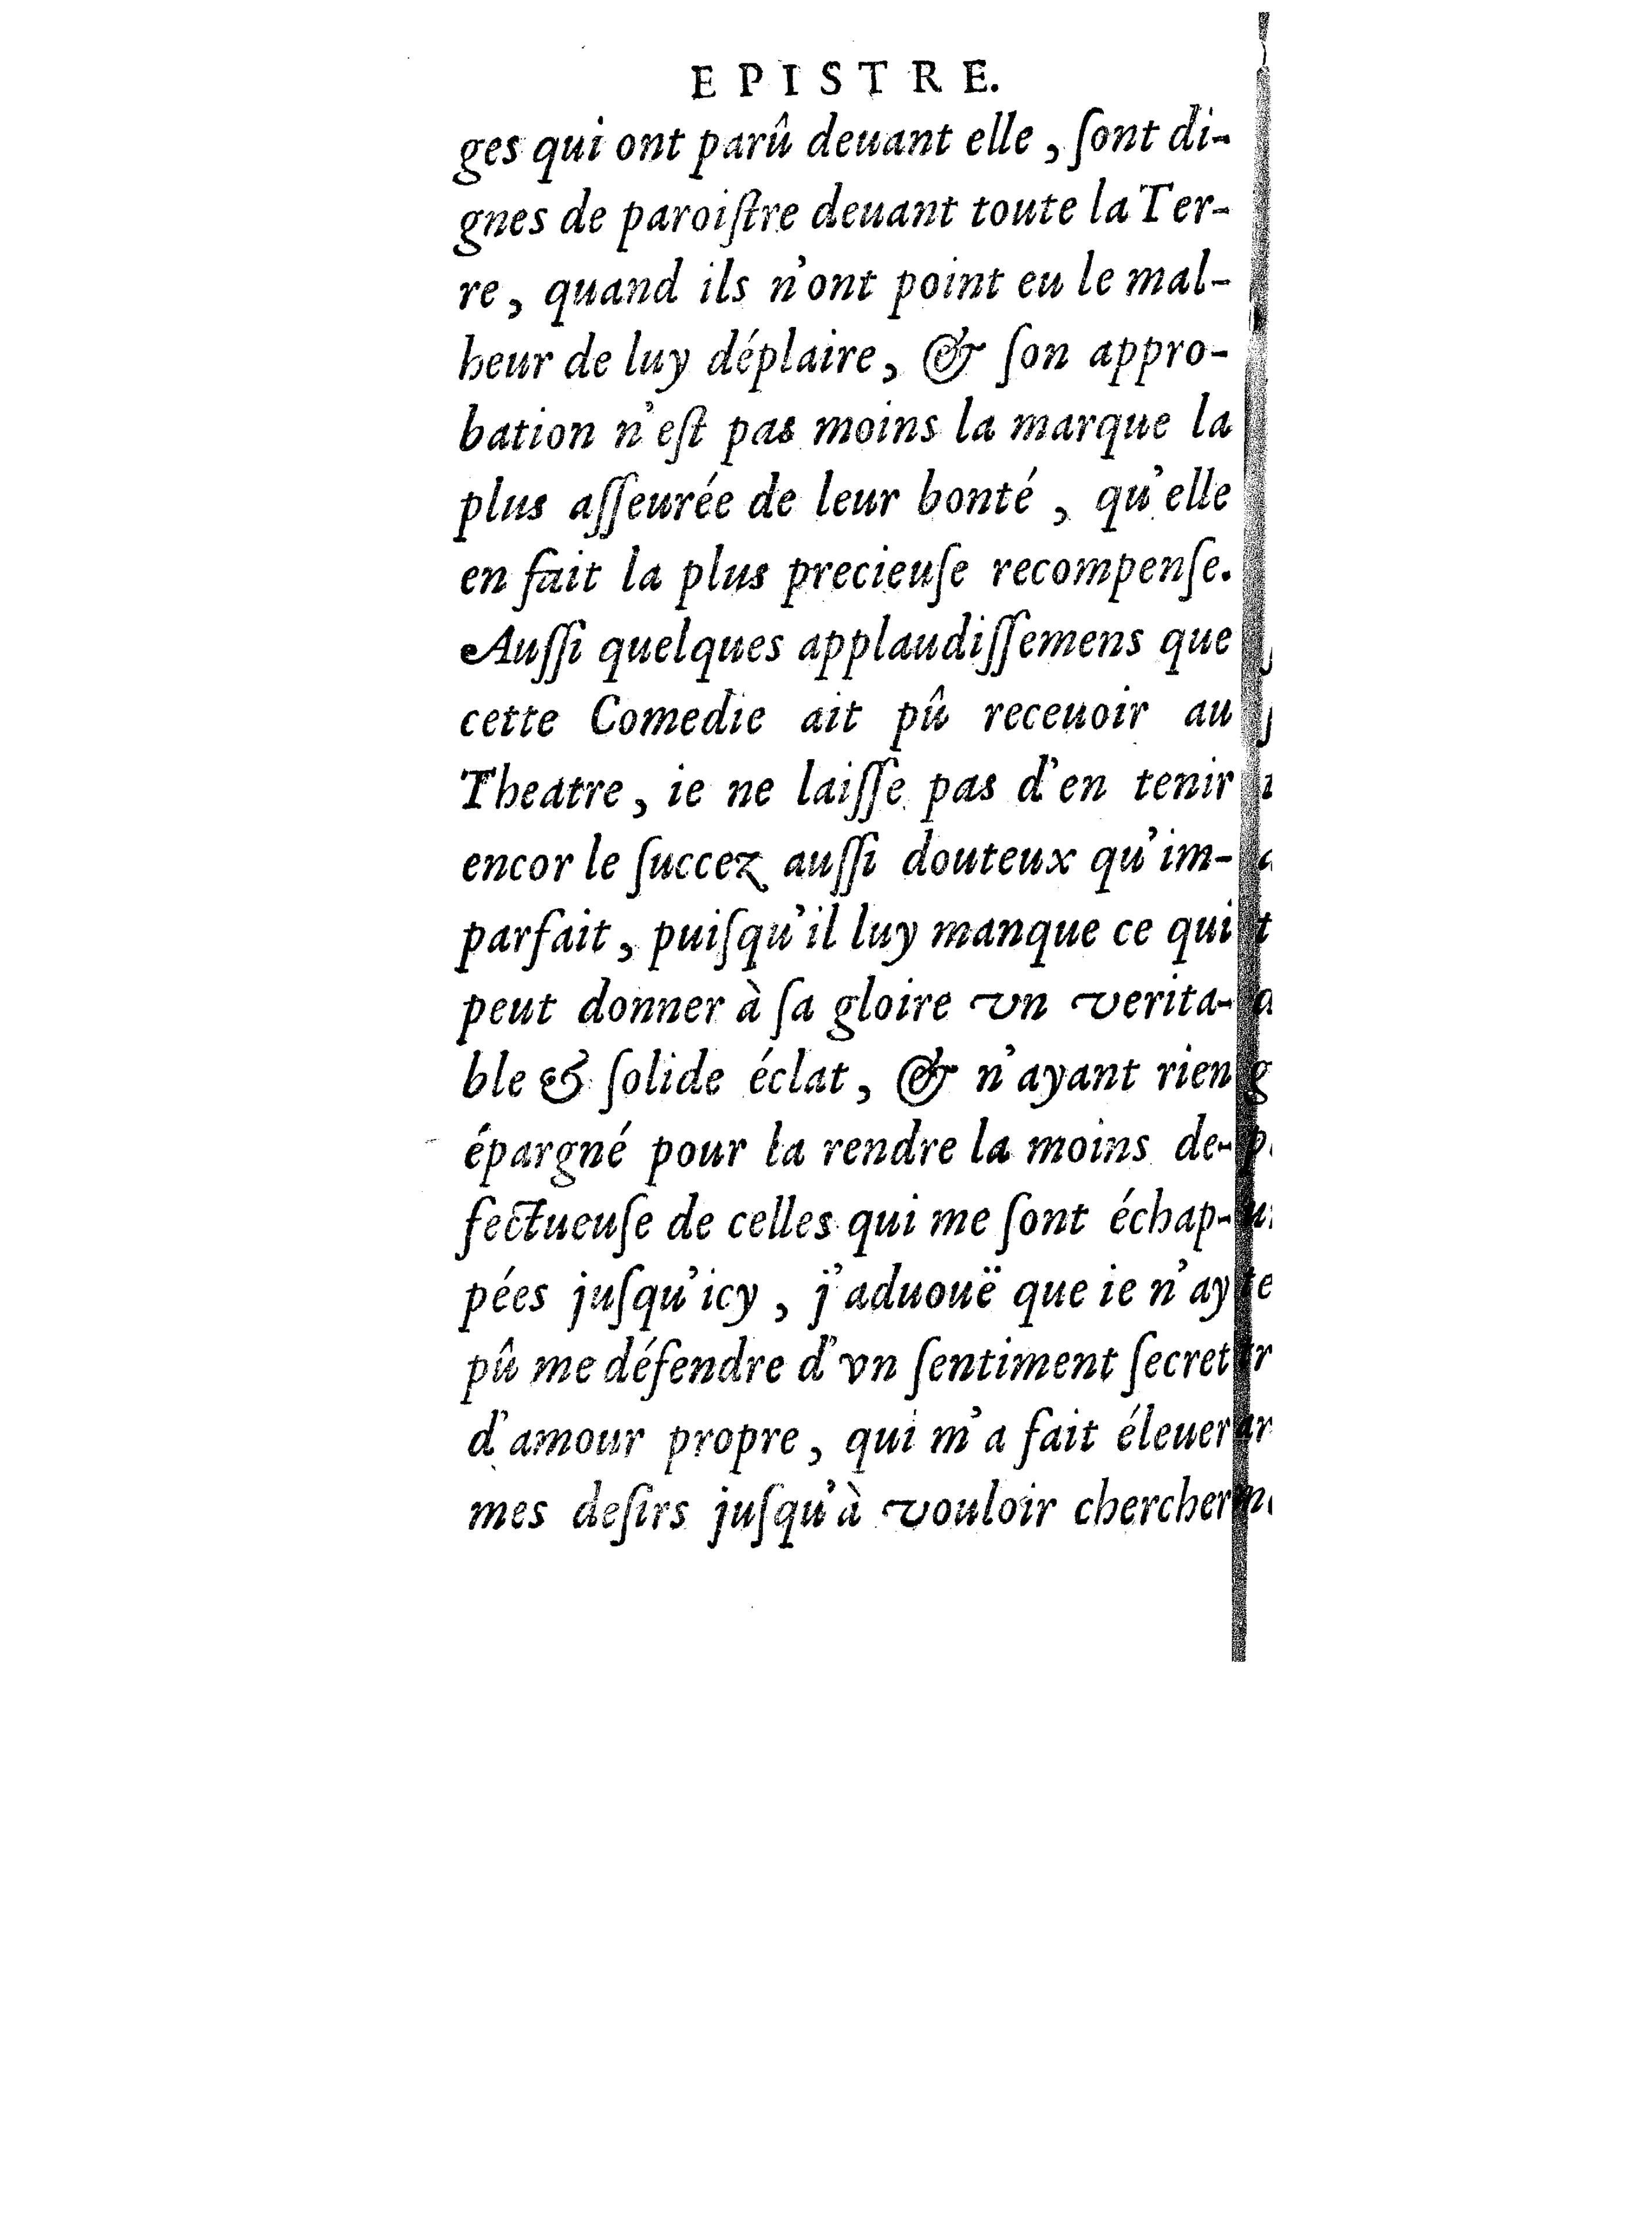 EPISTRE.
ges qui ont parû deuant elle, ſont di-
gnes de paroiſtre deuant toute la Ter-
re, quand ils n'ont point eu le mal-
heur de luy déplaire, & ſon appro-
bation n'eſt pas moins la marque la
plus aſſeurée de leur bonté, qu'elle
en fait la plus precieuſe recompenſe.
Auſſi quelques applaudiſſemens que
cette Comedie ait pû receuoir au
Theatre, ie ne laiſſe pas d'en tenir
encor le ſuccez auſſi douteux qu'im-
parfait, puiſqu'il luy manque ce qui
peut donner à ſa gloire vn verita-
ble & ſolide éclat, & n'ayant rien
épargné pour la rendre la moins de-
fectueuſe de celles qui me ſont échap-
pées juſqu'icy, j'aduouë que ie n'ay
pû me défendre d'vn ſentiment ſecret
d'amour propre, qui m'a fait éleuer
mes deſirs juſqu'à vouloir chercher